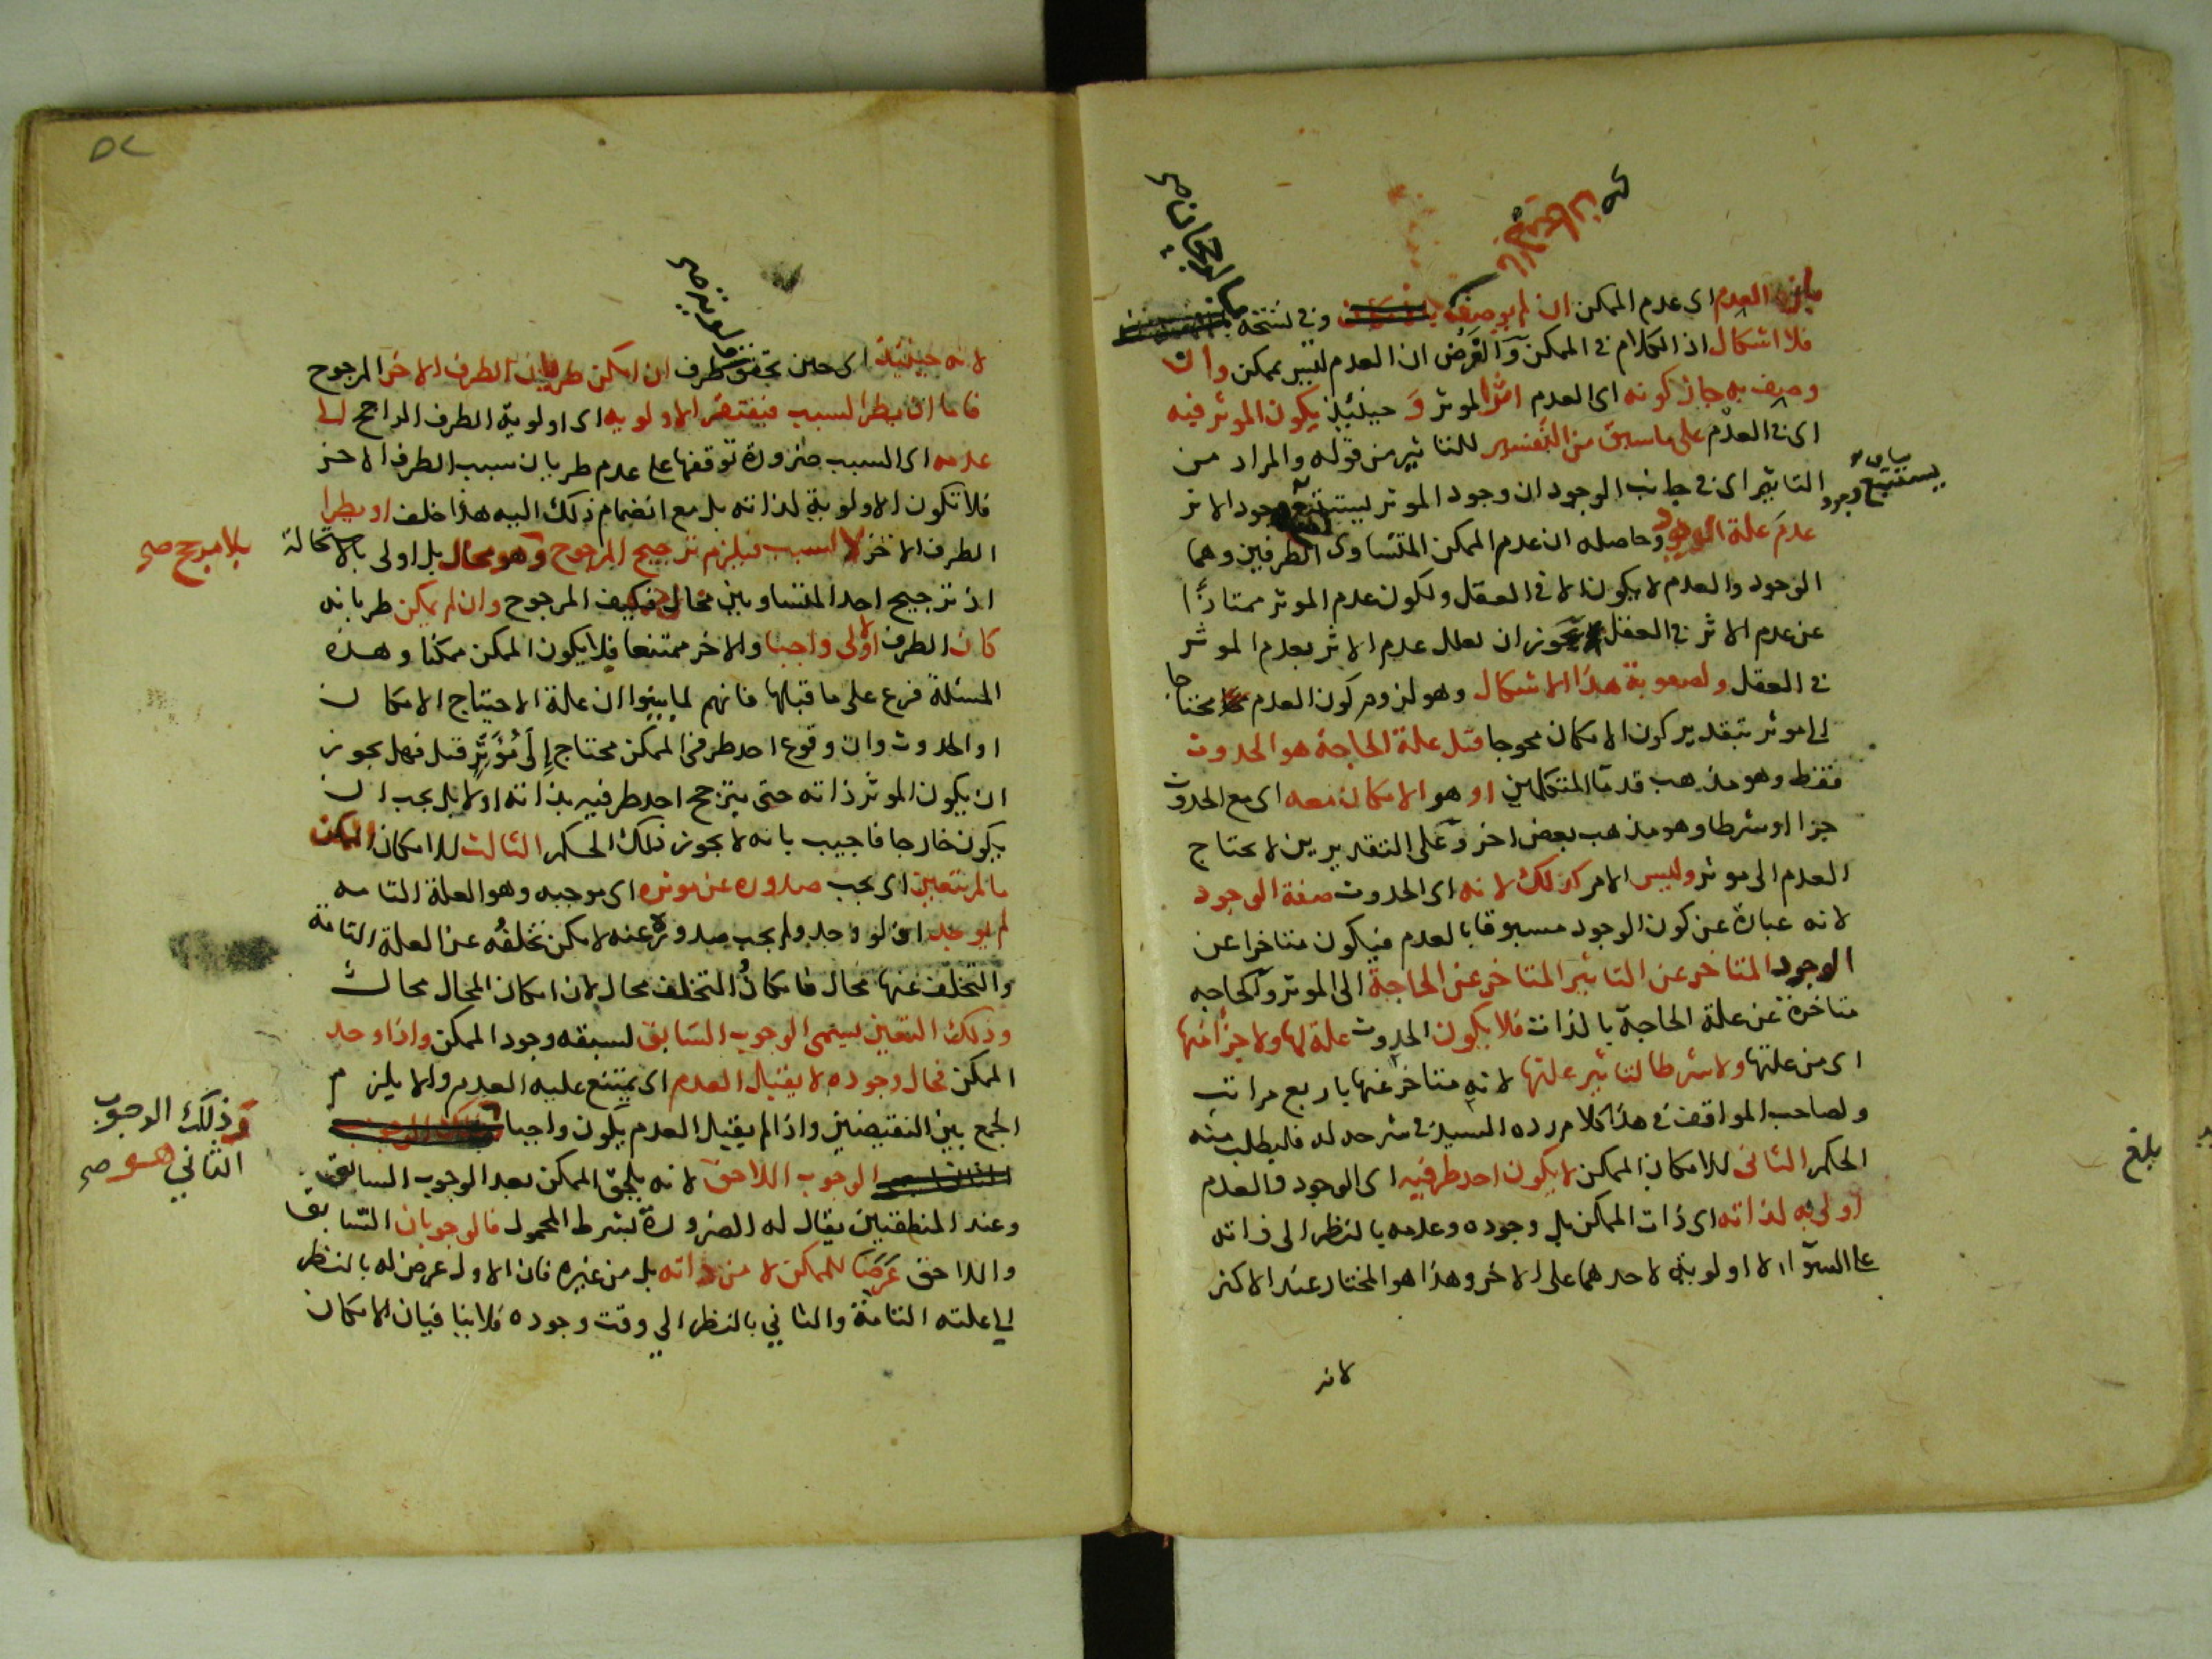 بان العدم اى عدم الممكن ان لم يوصف وفى نسخة
فلا اشكال اذ الكلام فى الممكن والفرض ان العدم ليس بممكن وان
وصف به جاز كونه اى العدم اثرا لموثر و حينئذ يكون الموثر فيه
اى فى العدم على ما سبق من التفسير للتاثير من قوله والمراد من
التاثير اى فى جانب الوجود ان وجود الموثر يستتبع وجود الاثر
عدم علة الوجود وحاصله ان عدم الممكن المتساوى الطرفين وهما
الوجود والعدم لا يكون الا فى العقل ولكون عدم الموثر ممتازا
عن عدم الاثر فى العقل يجوز ان يعلل عدم الاثر بعدم الموثر
فى العقل ولصعوبة هذا الاشكال وهو لزوم كون العدم محتاجا
الى موثر بتقدير كون الامكان محوجا قيل علة الحاجة هو الحدوث
فقط وهو مذهب قدما المتكلمين او هو الامكان معه اى مع الحدوث
جزا او شرطا وهو مذهب بعض اخر وعلى التقديرين لا يحتاج
العدم الى موثر وليس الامر كذلك لانه اى الحدوث صفة الوجود
لانه عبارة عن كون الوجود مسبوقا بالعدم فيكون متاخرا عن
الوجود المتاخر عن التاثير المتاخر عن الحاجة الى الموثر والحاجه
متاخرة عن علة الحاجة بالذات فلا يكون الحدوث علة لها ولا جزا منها
اى من علتها ولا شرطا لتاثير علتها لانه متاخر عنها باربع مراتب
ولصاحب المواقف فى هذا كلام رده السيد فى شرحه له فليطلب منه
الحكم الثانى للامكان الممكن لا يكون احد طرفيه اى الوجود والعدم
اولى به لذاته اى ذات الممكن بل وجوده وعدمه بالنظر الى ذاته
على السوآء لا اولوية لاحدهما على الاخر وهذا هو المختار عند الاكثر
لانه
يستتبع وجود
بلغ
لانه حينئذ اى حين تحقق طرف ان امكن طريان الطرف الاخر المرجوح
فاما ان يطرا لسبب فيفتقر الاولويه اى اولوية الطرف الراجح الى
عدمه اى السبب ضرورة توقفها على عدم طريان سبب الطرف الاخر
فلا تكون الاولوية لذاته بل مع انضمام ذلك اليه هذا خلف او يطرا
الطرف الاخر لا لسبب فيلزم ترجيح المرجوح وهو محال بل اولى بالاستحالة
اذ ترجيح احد المتساويين محال فكيف المرجوح وان لم يمكن طريانه
كان الطرف الاولى واجبا والاخر ممتنعا فلا يكون الممكن ممكنا وهذه
المسئلة فرع على ما قبلها فانهم لما بينوا ان علة الاحتياج الامكان
او الحدوث وان وقوع احد طرفى الممكن محتاج إلى مُؤَثِّر قيل فهل يجوز
ان يكون الموثر ذاته حتى يترجح احد طرفيه بذاته اولا بل يجب ان
يكون خارجا فاجيب بانه لا يجوز ذلك الحكم الثالث للامكان الممكن
مالم يتعين اى يجب صدوره عن موثره اى موجبه وهو العلة التامه
لم يوجد اى لو وجد ولم يجب صدوره عنه لامكن تخلفُه عن العلة التامة
والتخلف عنها محال فامكانُ التخلف محال لان امكان المحال محال
وذلك التعين يسمى الوجوب السابق لسبقه وجود الممكن واذا وجد
الممكن فحال وجوده لا يقبل العدم اى يمتنع عليه العدم والا يلزم
الجمع بين النقيضين واذا لم يقبل العدم يكون واجبا
الوجوب اللاحق لانه يلحق الممكن بعد الوجوب السابق
وعند المنطقيين يقال له الضرورة بشرط المحمول فالوجوبان السابق
واللاحق عَرَضَا للممكن لا من ذاته بل من غيره فان الاول عرض له بالنظر
الى علته التامة والثاني بالنظر الى وقت وجوده فلا ينافيان الامكان
بلا مرجح صح
وذلك الوجوب
الثاني هو صح